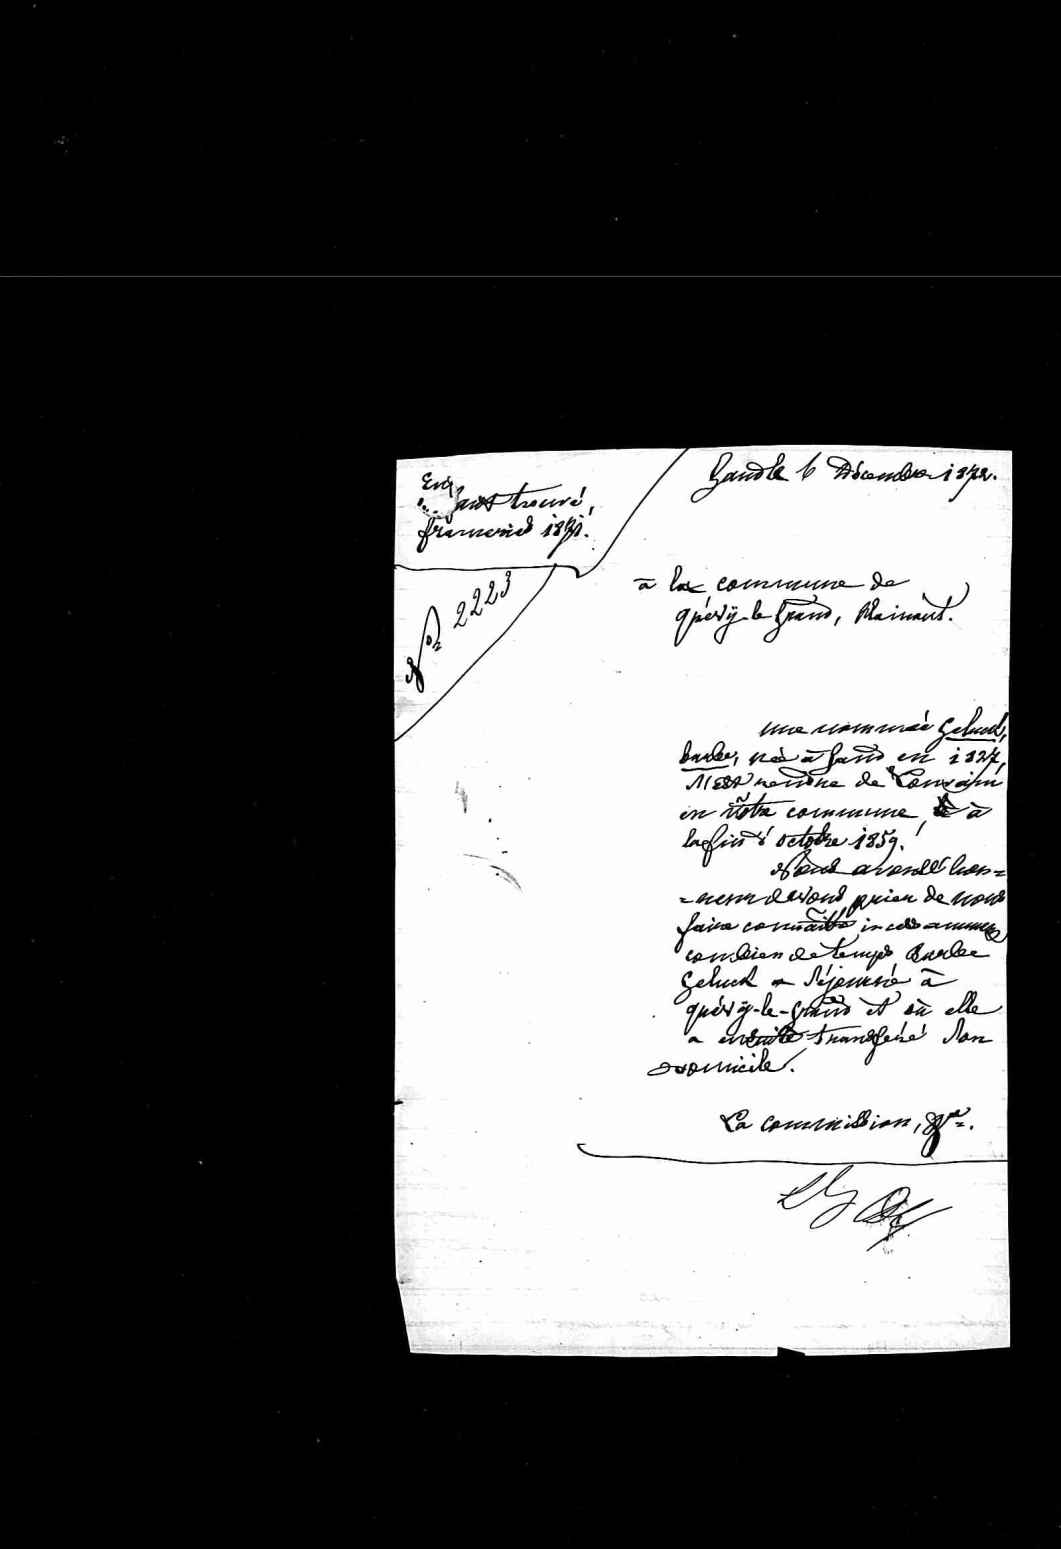 Gand le 6 Décembre 1872.
Enfant trouvé,
frameries 1871.
N° 2223
à la commune de
quévÿ-le-grand, Hainaut.
une nommée Geluck,
barbe, née à gand en 1827,
s'est rendue de Louvain
en vôtre commune, à
la fin d'octobre 1859.
Nous avons l'hon=
=neur de vous prier de nous
faire connaître incessamment
combien de temps Barbe
Geluck a séjourné à
quévÿ-le-grand et où elle
a ensuite transféré son
domicile.
La commission,